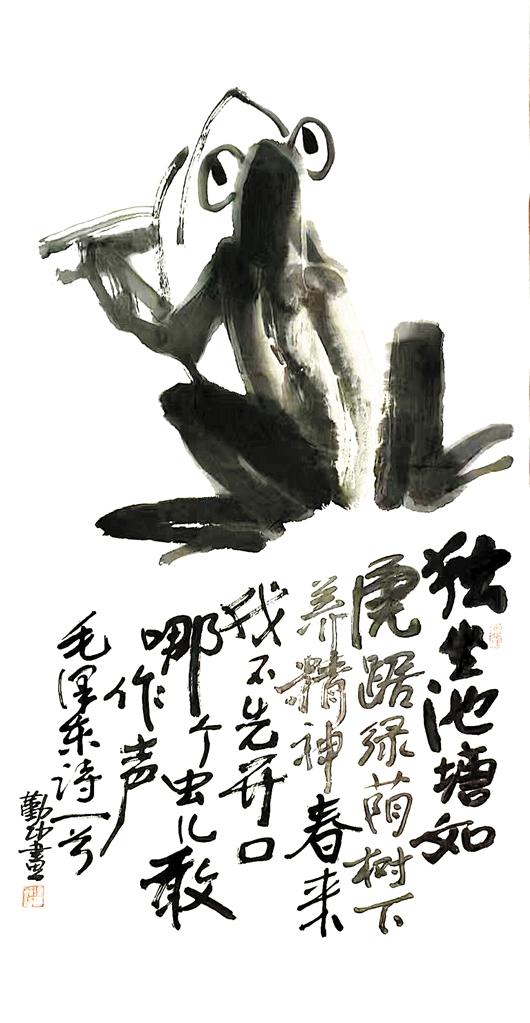 独坐池塘如
虎踞绿荫树下
养精神春来
我不先开口
哪个虫儿敢
作声
毛泽东诗一兮
勤功畫